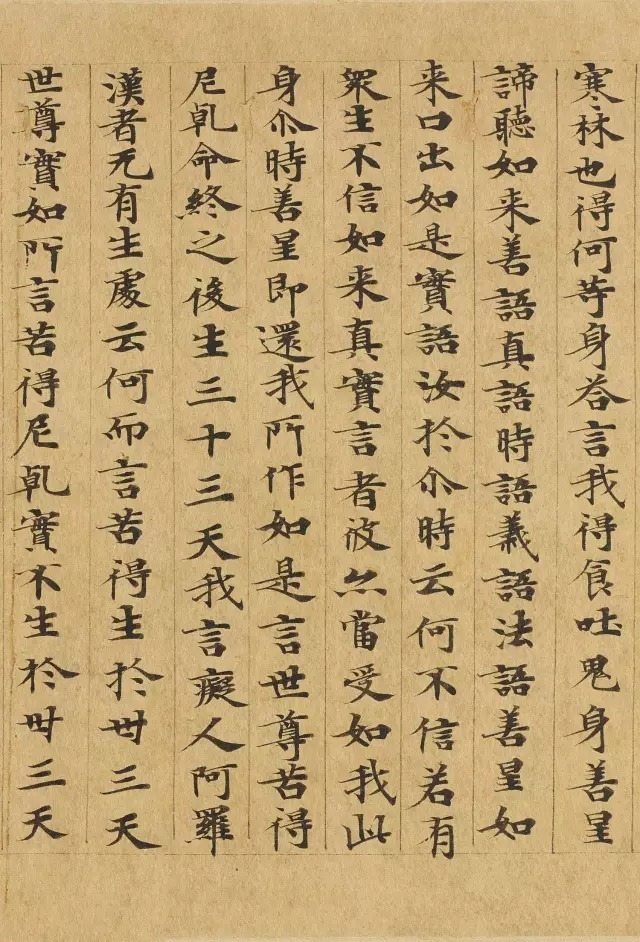 寒林也得何等身荅言我得食吐鬼身善星
諦聽如来善語真語時語義語法語善星如
来口出如是實語汝於尒時云何不信若有
衆生不信如来真實言者彼亦當受如我此
身尒時善星即還我所作如是言世尊苦得
尼乹命終之後生三十三天我言癡人阿羅
漢者无有生處云何而言苦得生於丗三天
世尊實如所言苦得尼乹實不生於丗三天